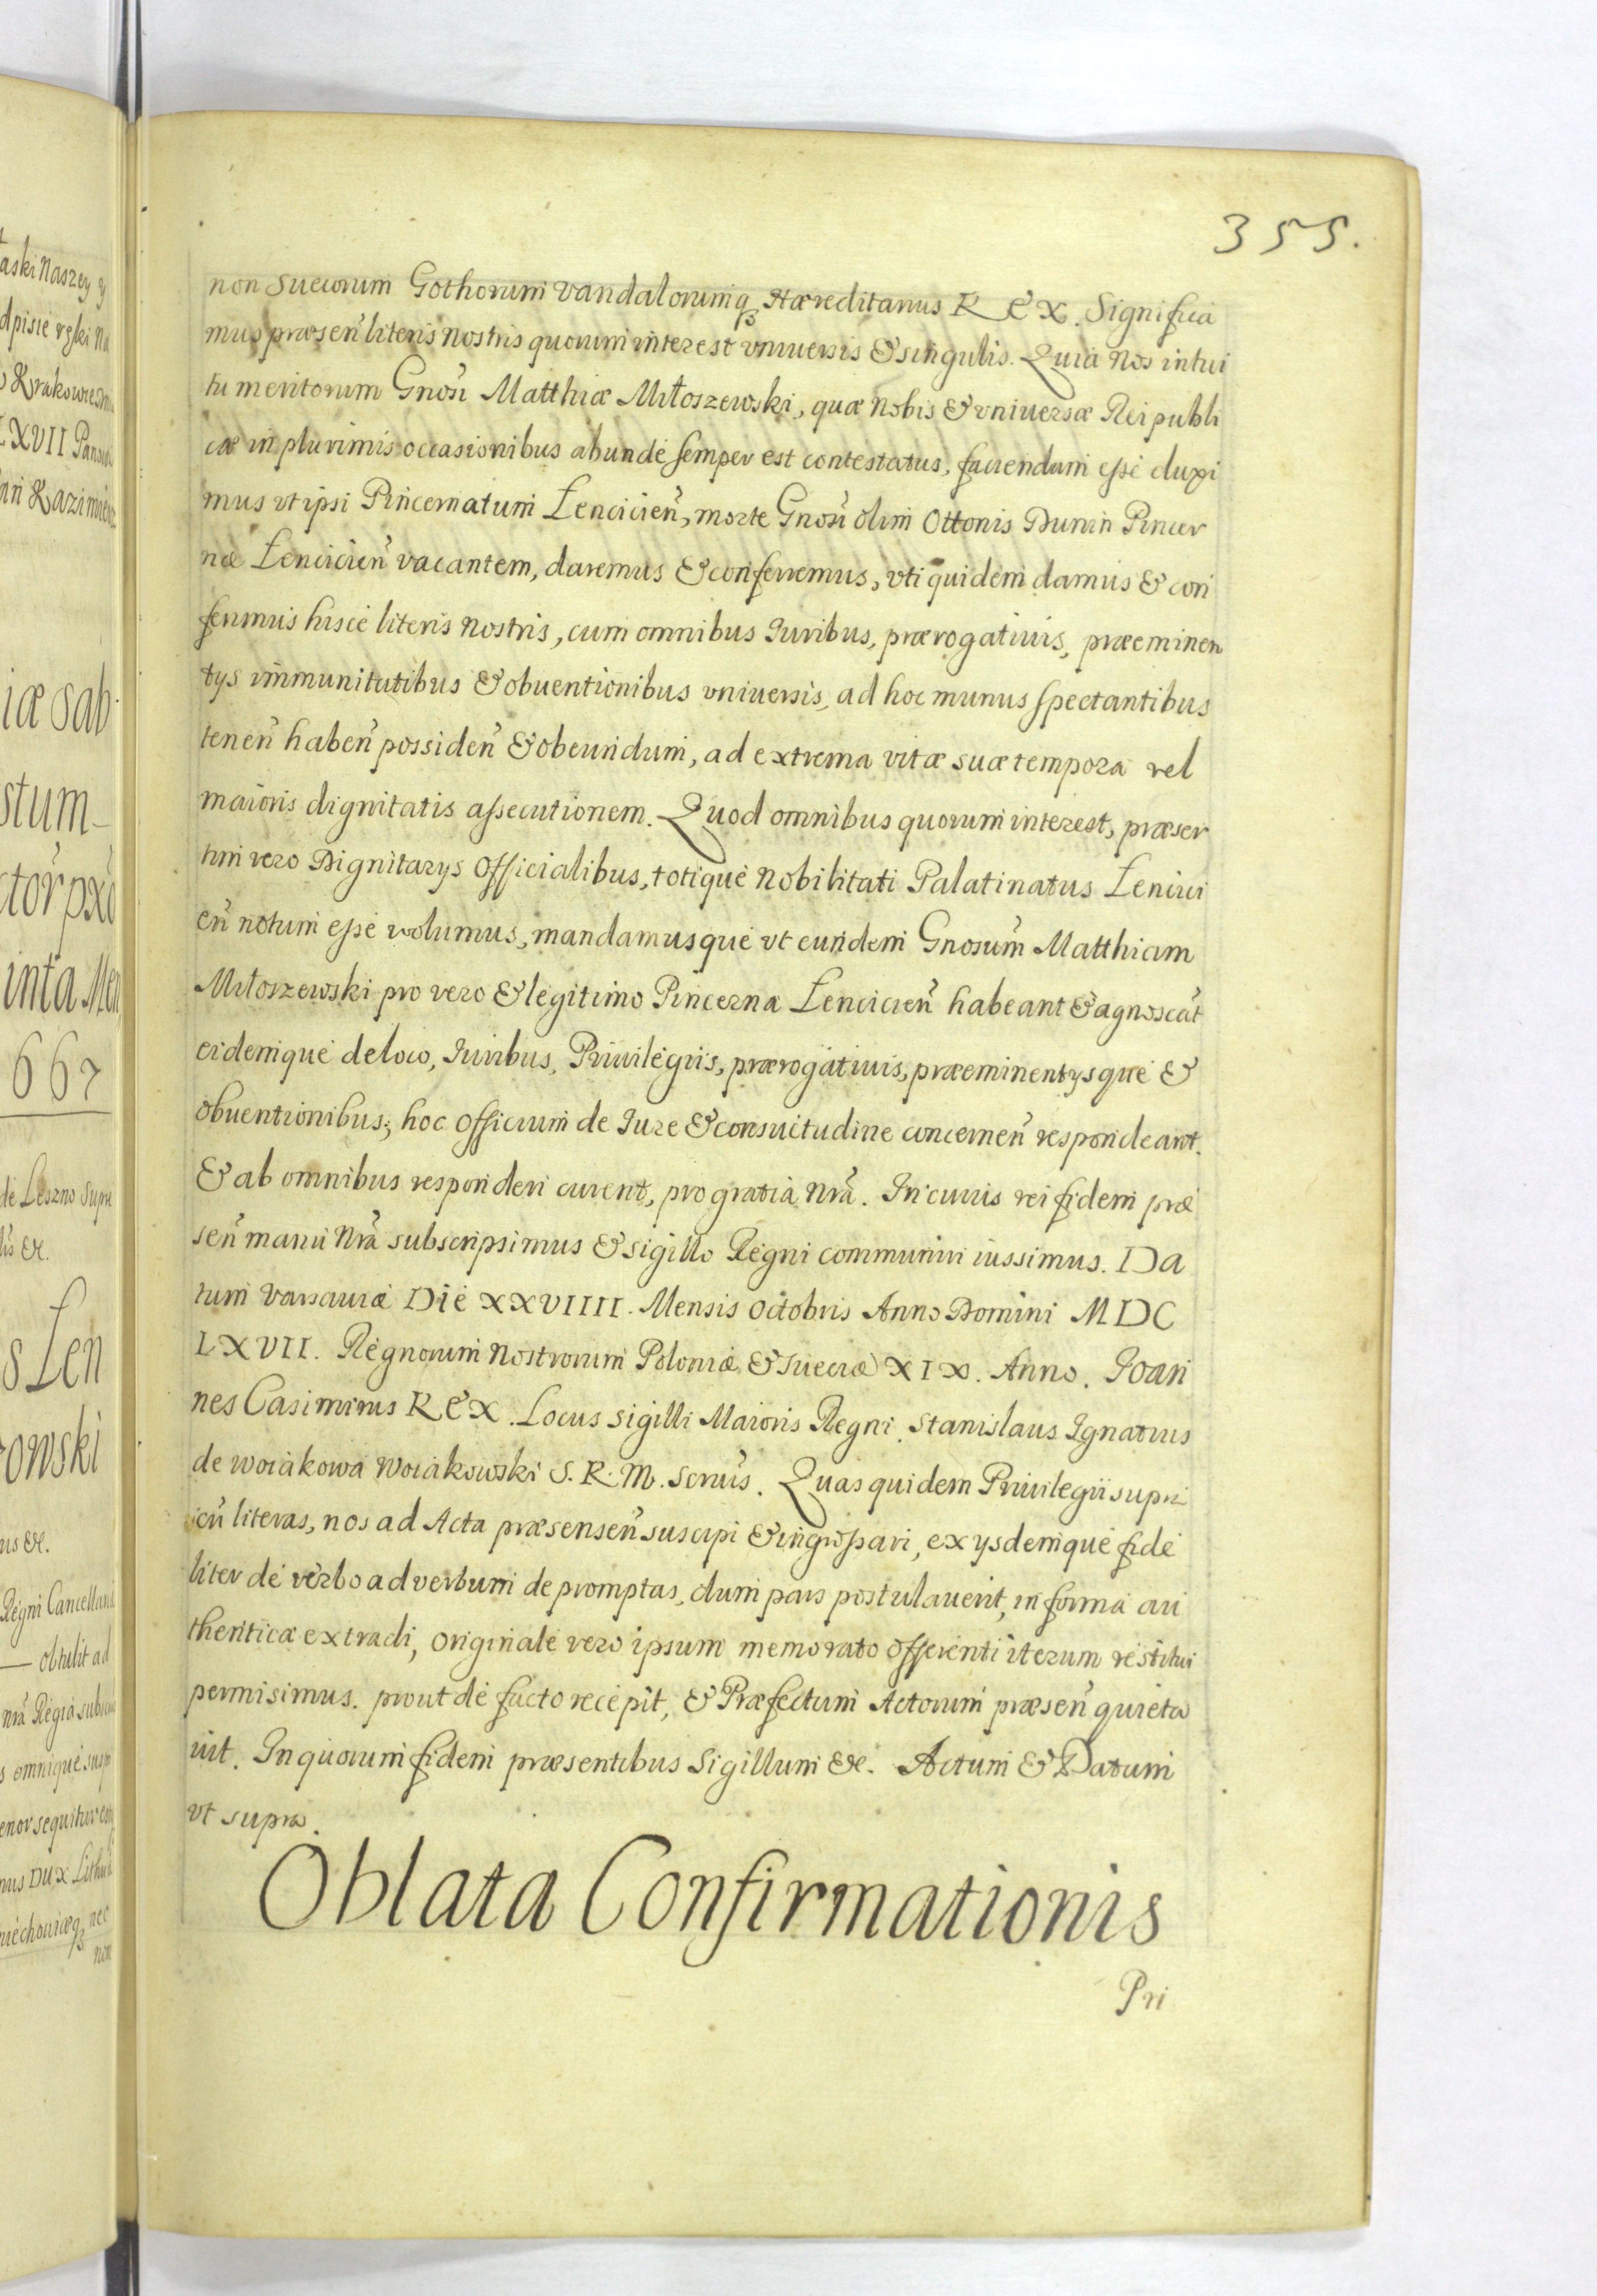 355.
non Suecorum Gothorum Vandalorumq₃ Hæreditarius REX. Significa
mus præsen̄ literis nostris quorum interest vniuersis & singulis. Quia nos intui
tu meritorum Gnosi Matthiæ Miłoszewski, quæ nobis & vniuersæ Reipubli
cæ in plurimis occasionibus abunde semper est contestatus, faciendam esse duxi
mus vt ipsi Pincernatum Łencicien̄, morte Gnosi olim Ottonis Dunin Pincer
næ Łencicien̄ vacantem, daremus & conferremus, vti quidem damus & con
ferimus hisce literis nostris, cum omnibus Iuribus, prærogatiuis, præeminen
tys immunitatibus & obuentionibus vniuersis, ad hoc munus spectantibus
tenen̄ haben̄ possiden̄ & obeundum, ad extrema vitæ suæ tempora vel
maioris dignitatis assecutionem. Quod omnibus quorum interest, præser
tim vero Dignitarys Officialibus, totique Nobilitati Palatinatus Łencici
en̄ notum esse volumus, mandamusque vt eundem Gnosum Matthiam
Miłoszewski pro vero & legitimo Pincerna Łencicien̄ habeant & agnoscāt
eidemque de loco, Iuribus, Priuilegiis, prærogatiuis, præeminentysque &
obuentionibus; hoc officium de Iure & consuetudine concernen̄ respondeant.
& ab omnibus responderi curent, pro gratia nrā. In cuius rei fidem præ
sen̄ manu nrā subscripsimus & sigillo Regni communiri iussimus. Da
tum Varsauiæ Die XXVIIII. Mensis Octobris Anno Domini MDC
LXVII. Regnorum nostrorum Poloniæ & Sueciæ XIX. Anno. Ioan
nes Casimirus REX. Locus sigilli Maioris Regni. Stanislaus Ignatius
de Woiakowa Woiakowski S. R. M. Scrius. Quas quidem Priuilegii supri
icn̄ literas, nos ad Acta præsensen̄ suscipi & ingrossari, ex ysdemque fide
liter de verbo ad verbum depromptas, dum pars postulauerit, in forma au
thentica extradi, originale vero ipsum memorato offerenti iterum restitui
permisimus. prout de facto recepit, & Præfectum Actorum præsen̄ quieta
uit. In quorum fidem præsentibus Sigillum &c. Actum & Datum
vt supra.
Oblata Confirmationis
Pri